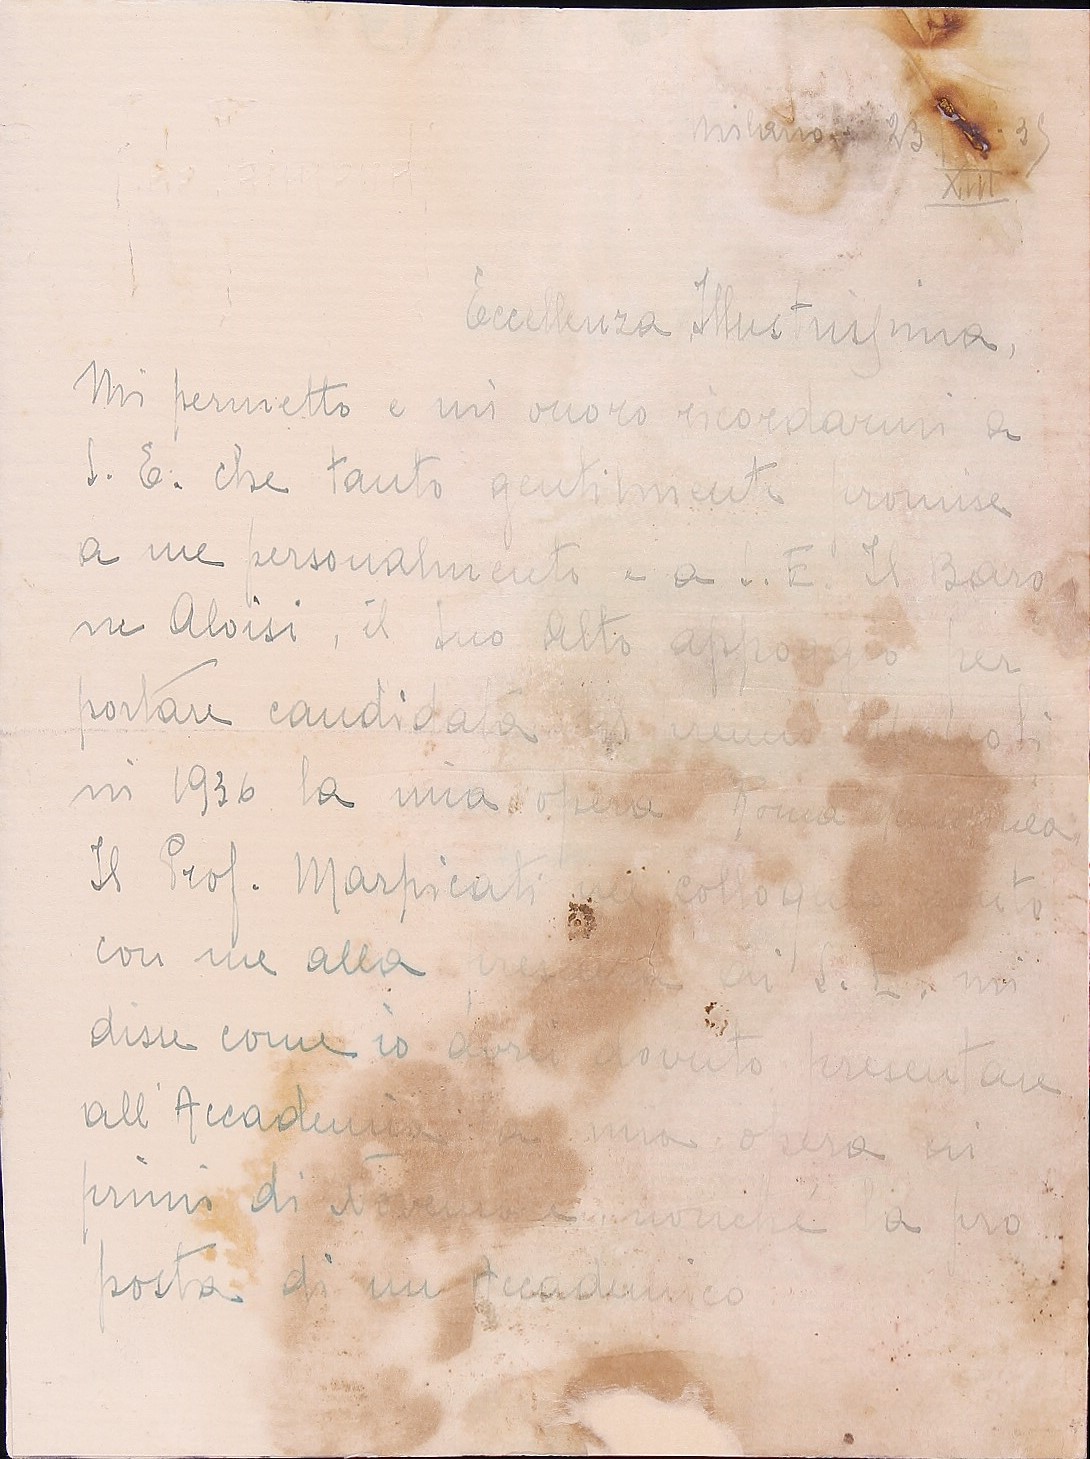 Milano 23 35
XIII
Eccellenza Illustrissima,
Mi permetto e mi onoro ricordarmi a
S. E. che tanto gentilmente promise
a me personalmente e a S. E. Il Baro
ne Aloisi, il suo Alto appoggio per
portare candidata
ni 1936 la mia opera Roma
Il Prof. Marpicati nel colloquio
con me alla presenza di S. E. mi
disse come io avrei dovuto presentare
all'Accademia la mia opera ai
primi di Novembre nonchè la pro
posta di un Accademico